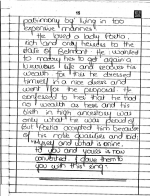 patrimony by living in too
expensive manners.
He loved a lady Portia,
rich and only heiress to the
state of Belmont. He wanted
to marry her to get again a
luxurious life and above his
wealth for this he dressed
himself in a nice dress and
went for the proposal. He
confessed to her that he had
no wealth as hers and his
birth in high ancestory was
only what he was proud of
But Portia accepted him because
of his noble qualities and said
"Myself and what is mine
to you and yours is now
converted I gave them to
you with this ring."